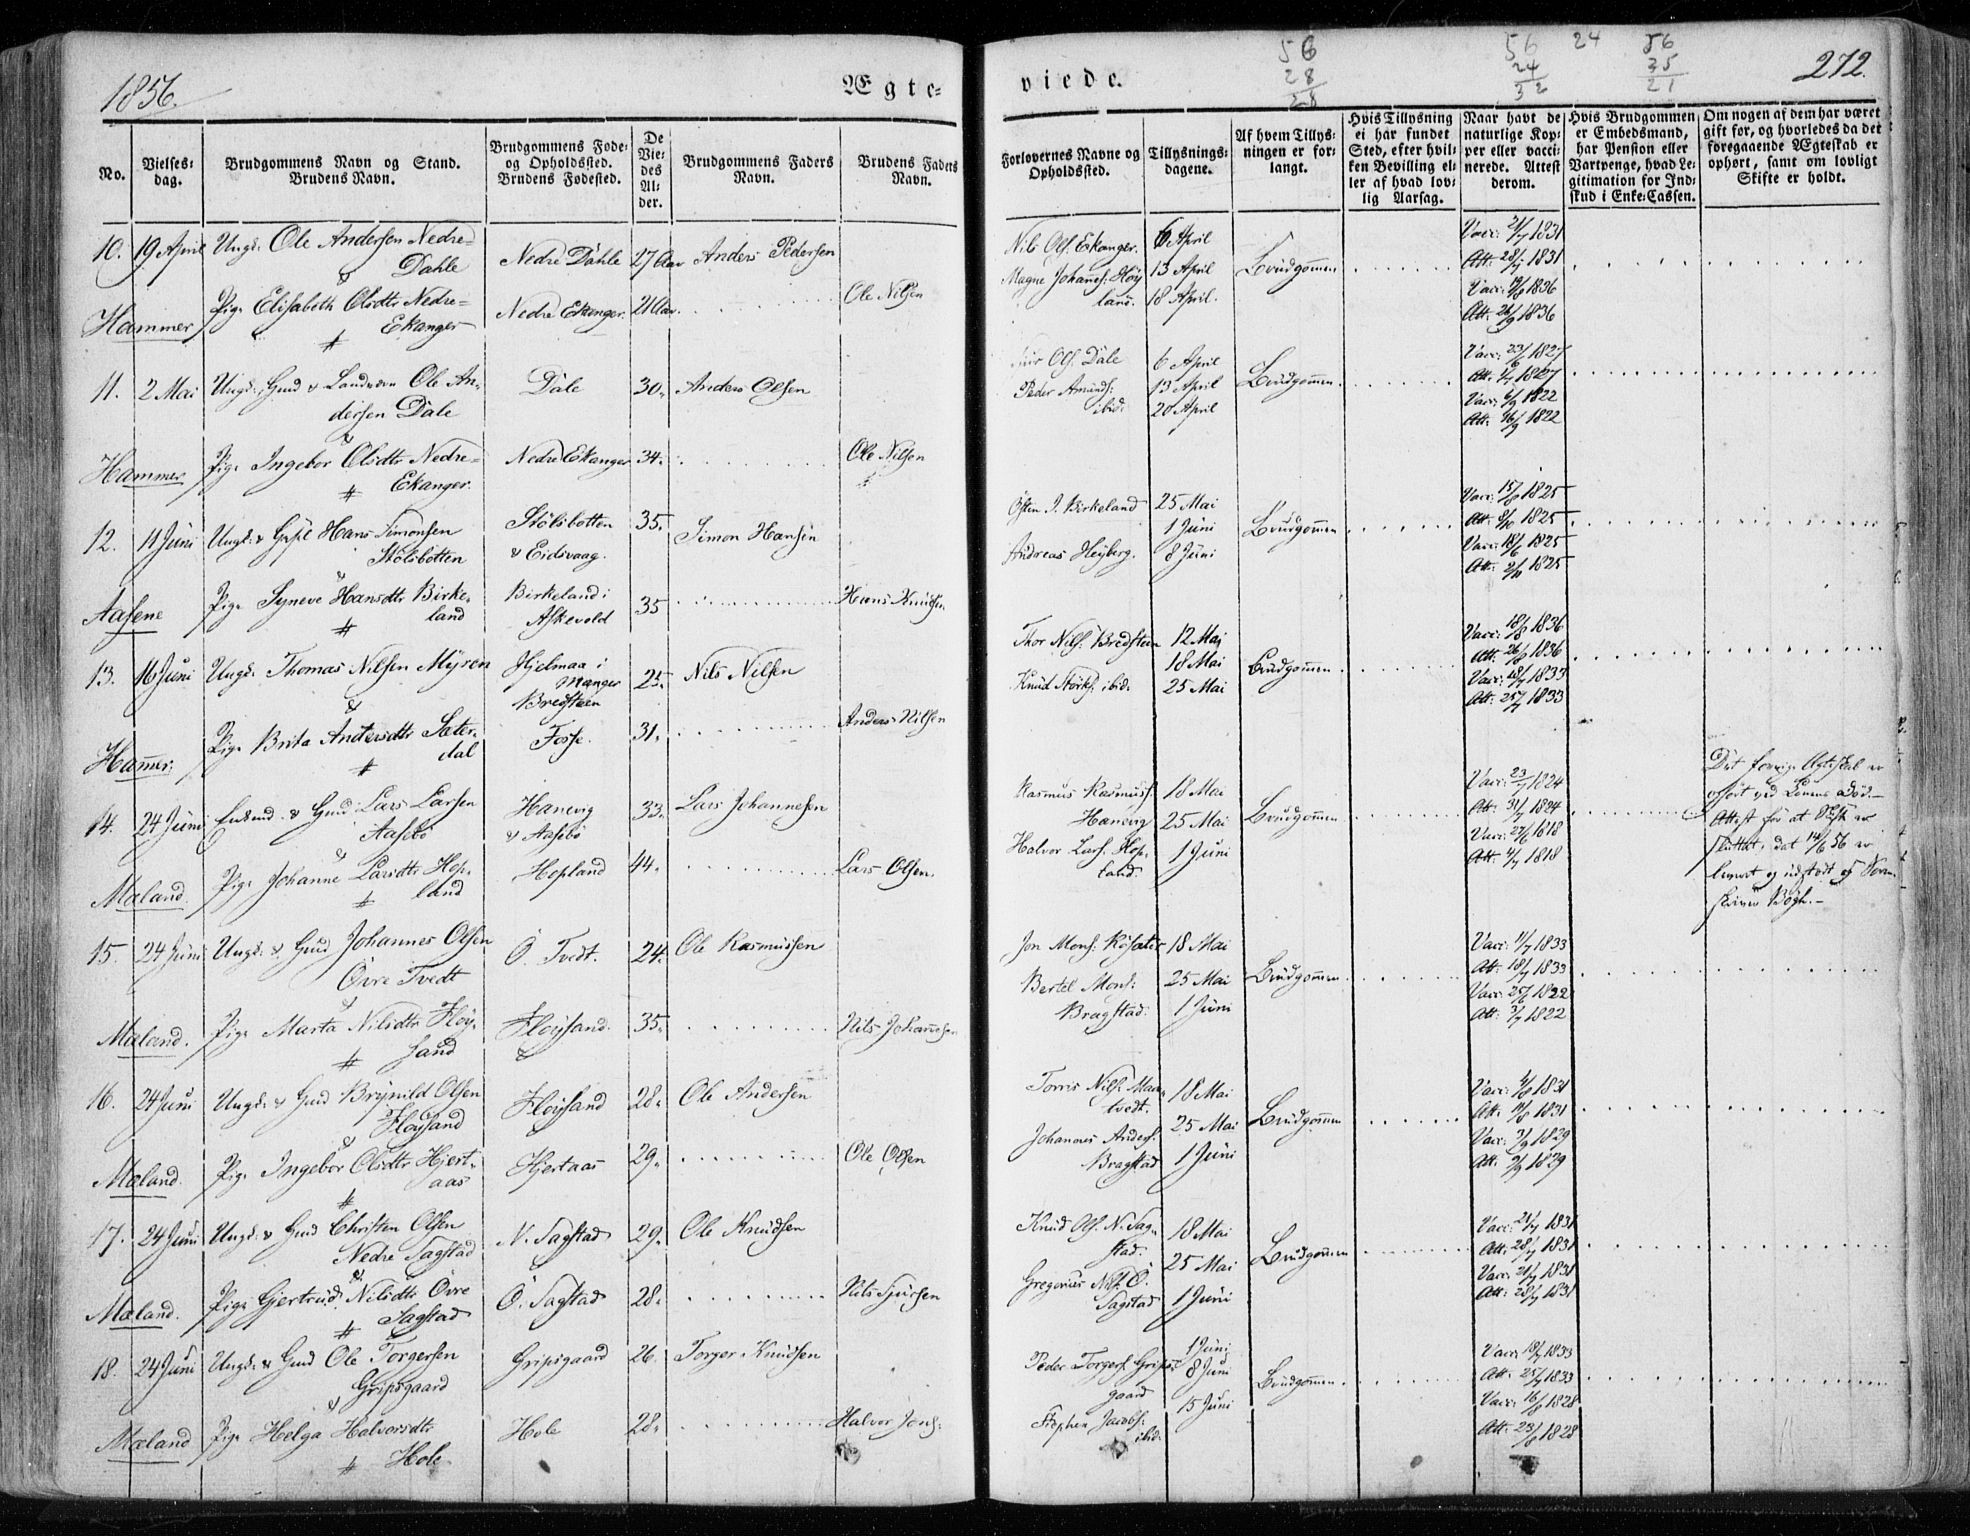 1856.
Ægte-
No.
Vielses-
dag.
Brudgommens Navn og Stand.
Brudens Navn.
Brudgommens Føde-
og Opholdssted.
Brudens Fødested.
De
Vie-
des
Al-
der.
Brudgommens Faders
Navn.
Brudens Faders
Navn.
10. 19 April Ungk: Ole Andersen Nedre= Nedre Dahle 27 Aar Anders Pedersen
& Dahle
Hammer Pige Elisabeth Olsdtr Nedre= Nedre Ekanger 21 Aar Ole Nilsen
Ekanger
11. 2 Mai Ungk: Gmd & Landværn Ole An- Dale 30. Anders Olsen
dersen Dale
&
Hammer Pige Ingebor Olsdtr Nedre= Nedre Ekanger 34. Ole Nilsen
Ekanger.
12. 11 Juni Ungk: & Gpl Hans Simonsen Stölsbotten 35. Simon Hansen
Stölsbotten & Eidsvaag.
&
Aasene Pige Syneve Hansdtr Birke- Birkeland i 35 Hans Knudsen
land Askevold
13. 16 Juni Ungk: Thomas Nilsen Myren Hjelmaa i 25. Nils Nilsen
Manger
& Bredsteen
Hammer: Pige Brita Andersdtr Sæter- Fosse. 31. Anders Nilsen
dal
14. 24 Juni Enkemd. & Gmd: Lars Larsen Hanevig 33. Lars Johannesen
Aasebö & Aasebö
&
Mæland. Pige Johanne Larsdtr Hop- Hopland 44. Lars Olsen.
land
15. 24 Juni Ungk: & Gmd Johannes Olsen Ö. Tvedt. 24. Ole Rasmussen
Övre Tvedt
&
Mæland. Pige Marta Nilsdtr Flöy- Flöysand. 35. Nils Johannesen
sand
16. 24 Juni Ungk: & Gmd Brynild Olsen Flöysand 28. Ole Andersen
Flöysand
&
Mæland. Pige Ingebor Olsdtr Hjert- Hjertaas 29. Ole Olsen
aas
17. 24 Juni Ungk: & Gmd Christen Olsen N. Sagstad 29. Ole Knudsen
Nedre Sagstad
&
Mæland. Pige Gjertrud Nilsdtr Övre Ö. Sagstad 28. Nils Sjursen
Sagstad
18. 24 Juni Ungk: & Gmd Ole Torgersen Gripsgaard 26. Torger Knudsen
Gripsgaard
&
Mæland Pige Helga Halvorsdtr Hole 28. Halvor Jons:
Hole
viede.
56
28
28
56
24
32
24
56
35
21
272.
Forlovernes Navne og
Opholdssted.
Tillysnings-
dagene.
Af hvem Tillys-
ningen er for-
langt.
Hvis Tillysning
ei har fundet
Sted, efter hvil-
ken Bevilling el-
ler af hvad lov-
lig Aarsag.
Naar havt de
naturlige Kop-
per eller vacci-
nerede. Attest
derom.
Hvis Brudgommen
er Embedsmand,
har Pension eller
Vartpenge, hvad Le-
gitimation for Ind-
skud i Enke-Cassen.
Om nogen af dem har været
gift før, og hvorledes da det
foregaaende Ægteskab er
ophørt, samt om lovligt
Skifte er holdt.
Nils Ols. Ekanger. 6 April Vacc: 21/7 1831
Magne Johans. Höy 13 April Brudgommen Att: 28/7 1831
land. 18 April. Vacc: 19/8 1836
Att: 26/9 1836
Ols. Dale 6 April Vacc: 1827
Peder Amunds: 13 April Brudgommen Att: 1827
ibid. 20 April Vacc: 6/9 1822
Att: 16/9 1822
Östen J. Birkeland 25 Mai Vacc: 15/8 1825
1 Juni Brudgommen Att: 8/10 1825
Andreas Heyberg. 8 Juni Vacc: 18/6 1825
Att: 2/10 1825
Thor Nils. Bredsteen 12 Mai Vacc: 18/8 1836
18 Mai Brudgommen Att: 26/8 1836
Knud Störks. ibid. 25 Mai Vacc: 18/7 1833
Att: 25/7 1833
Rasmus Rasmuss. 18 Mai Vacc: 23/7 1824 Det forrige Ægteskab er
Hanevig 25 Mai Brudgommen Att: 31/7 1824 ophört ved Konens Död. -
Halvor Lars. Hop- 1 Juni Vacc: 27/6 1818 Attest for at Skifte er
land. Att: 4/7 1818 sluttet, dat 14/6 56 er
leveret og udstedt af Soren-
skriver Bögh. -
Jon Mons. Rösæter 18 Mai Vacc: 11/7 1833
Bertel Mons: 25 Mai Brudgommen Att: 18/7 1833
Bragstad: 1 Juni Vacc: 25/6 1822
Att: 3/7 1822
Torris Nils. Mar- 18 Mai Vacc: 4/8 1831
tvedt. 25 Mai Brudgommen Att: 11/8 1831
Johannes Anders. Vacc: 3/9 1829
Bragstad 1 Juni Att: 9/9 1829
Knud Ols. N. Sag- 18 Mai Vacc: 21/7 1831
stad. 25 Mai Brudgommen Att: 28/7 1831
Gregorius Nils. Ö. Vacc: 21/7 1831
Sagstad 1 Juni Att: 28/7 1831
1 Juni Vacc: 18/7 1833
Peder Torgers. Grips- 8 Juni Att: 25/7 1833
gaard 15 Juni Brudgommen Vacc: 16/8 1828
Stephen Jacobs: Att: 23/8 1828
ibid.